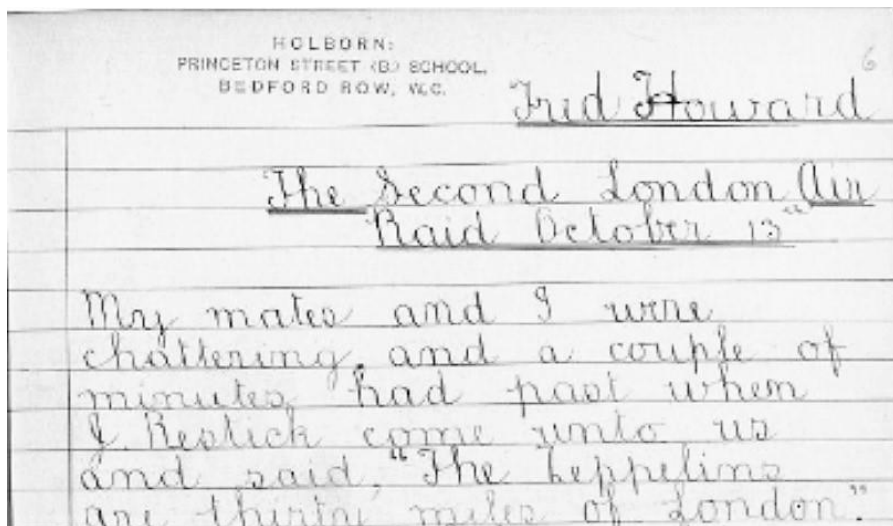 HOLBORN:
PRINCETON STREET (B.) SCHOOL,
BEDFORD ROW, W.C.
6
Fred Howard
The Second London Air
Raid October 13"
My mates and I were
chattering, and a couple of
minutes had past when
J. Restick come unto us
and said, "The Zeppelins
are thirty miles of London."